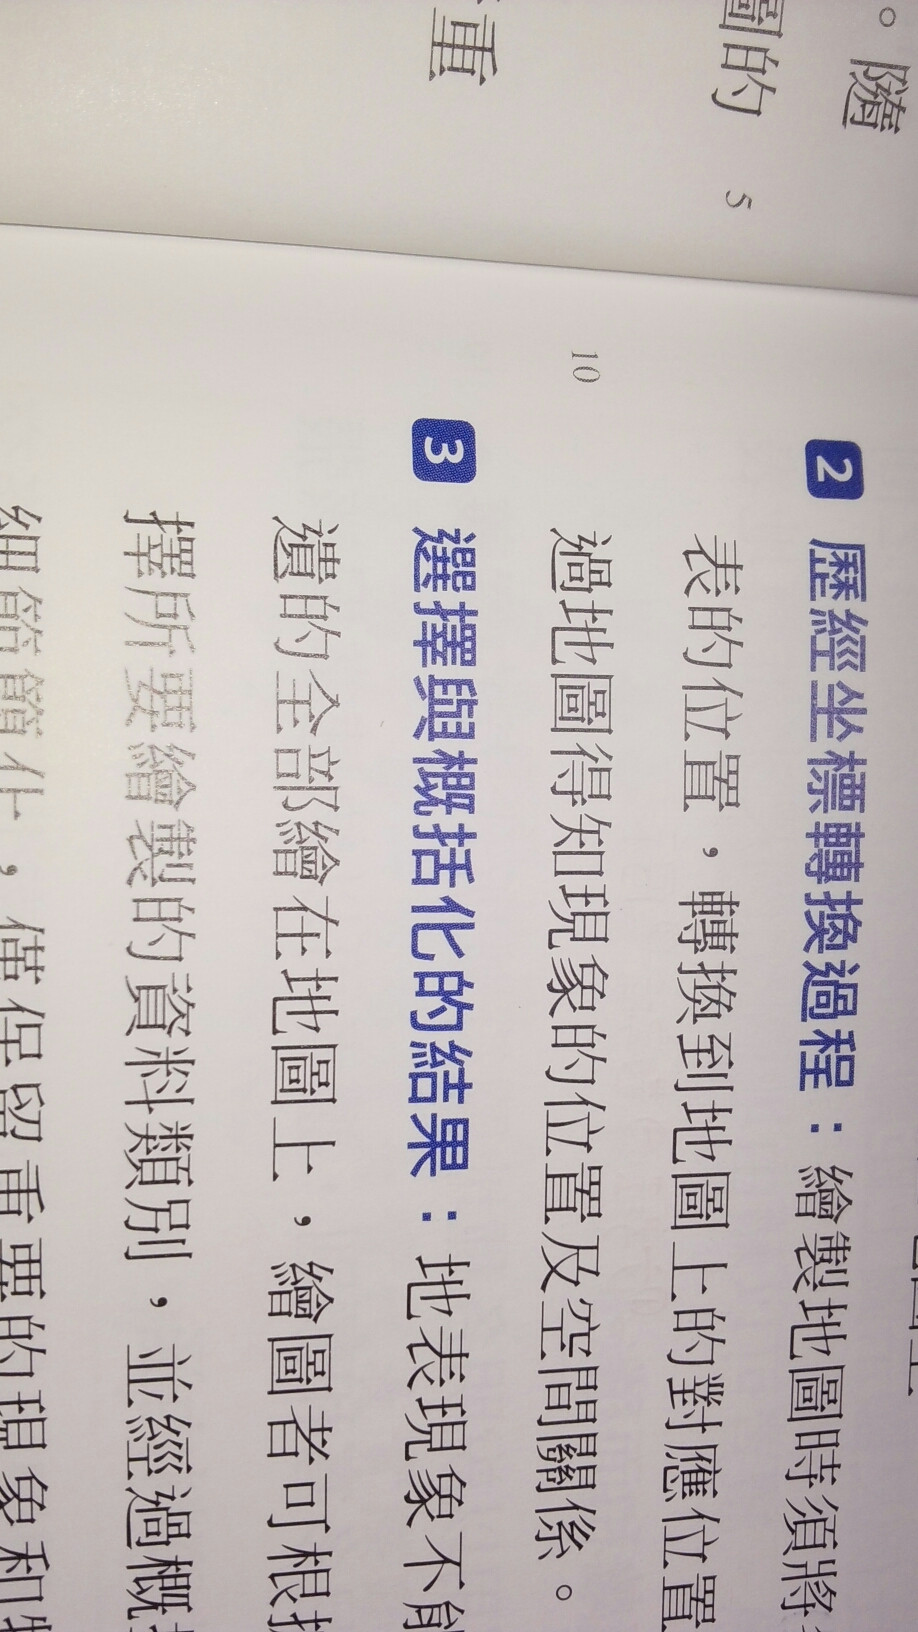 。隨
圖的
5
重
2 歷經坐標轉換過程：繪製地圖時須將
表的位置，轉換到地圖上的對應位置
10
過地圖得知現象的位置及空間關係。
3 選擇與概括化的結果：地表現象不能
遺的全部繪在地圖上，繪圖者可根
擇所要繪製的資料類別，並經過概
細節簡化，僅保留重要的現象和